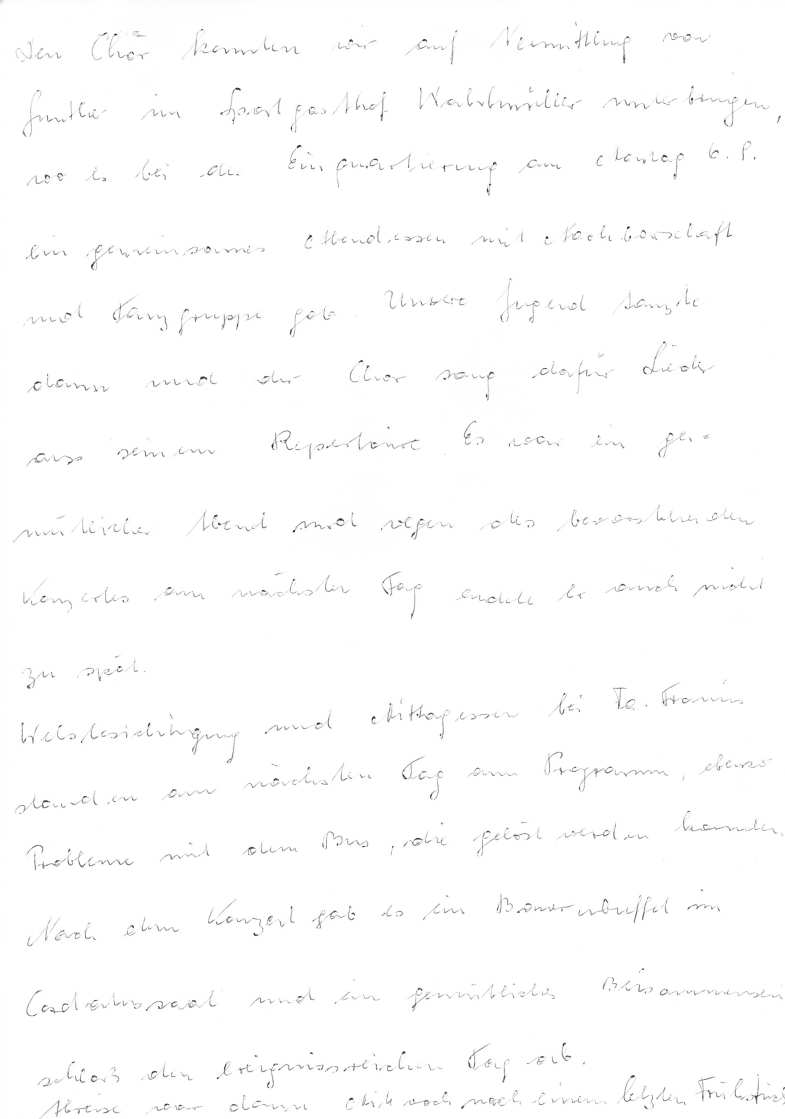 Den Chor konnten wir auf Vermittlung von
Günther im Sportgasthof Waldmüller unterbringen,
wo es bei der Einquartierung am Montag 6. P.
ein gemeinsames Abendessen mit Nachbarschaft
und Tanzgruppe gab. Unsere Jugend tanzte
dann und der Chor sang dafür Lieder
aus seinem Repertoire. Es war ein ge-
mütlicher Abend und wegen des bevorstehenden
Konzertes am nächsten Tag endete er auch nicht
zu spät.
Welsbesichtigung und Mittagessen bei Fa.
standen am nächsten Tag am Programm, ebenso
Probleme mit dem Bus, die gelöst werden konnten.
Nach dem Konzert gab es ein Bauernbuffet im
saal und ein gemütliches Beisammensein
schloß den ereignisreichen Tag ab.
Abreise war dann Mittwoch nach einem letzten Frühstück